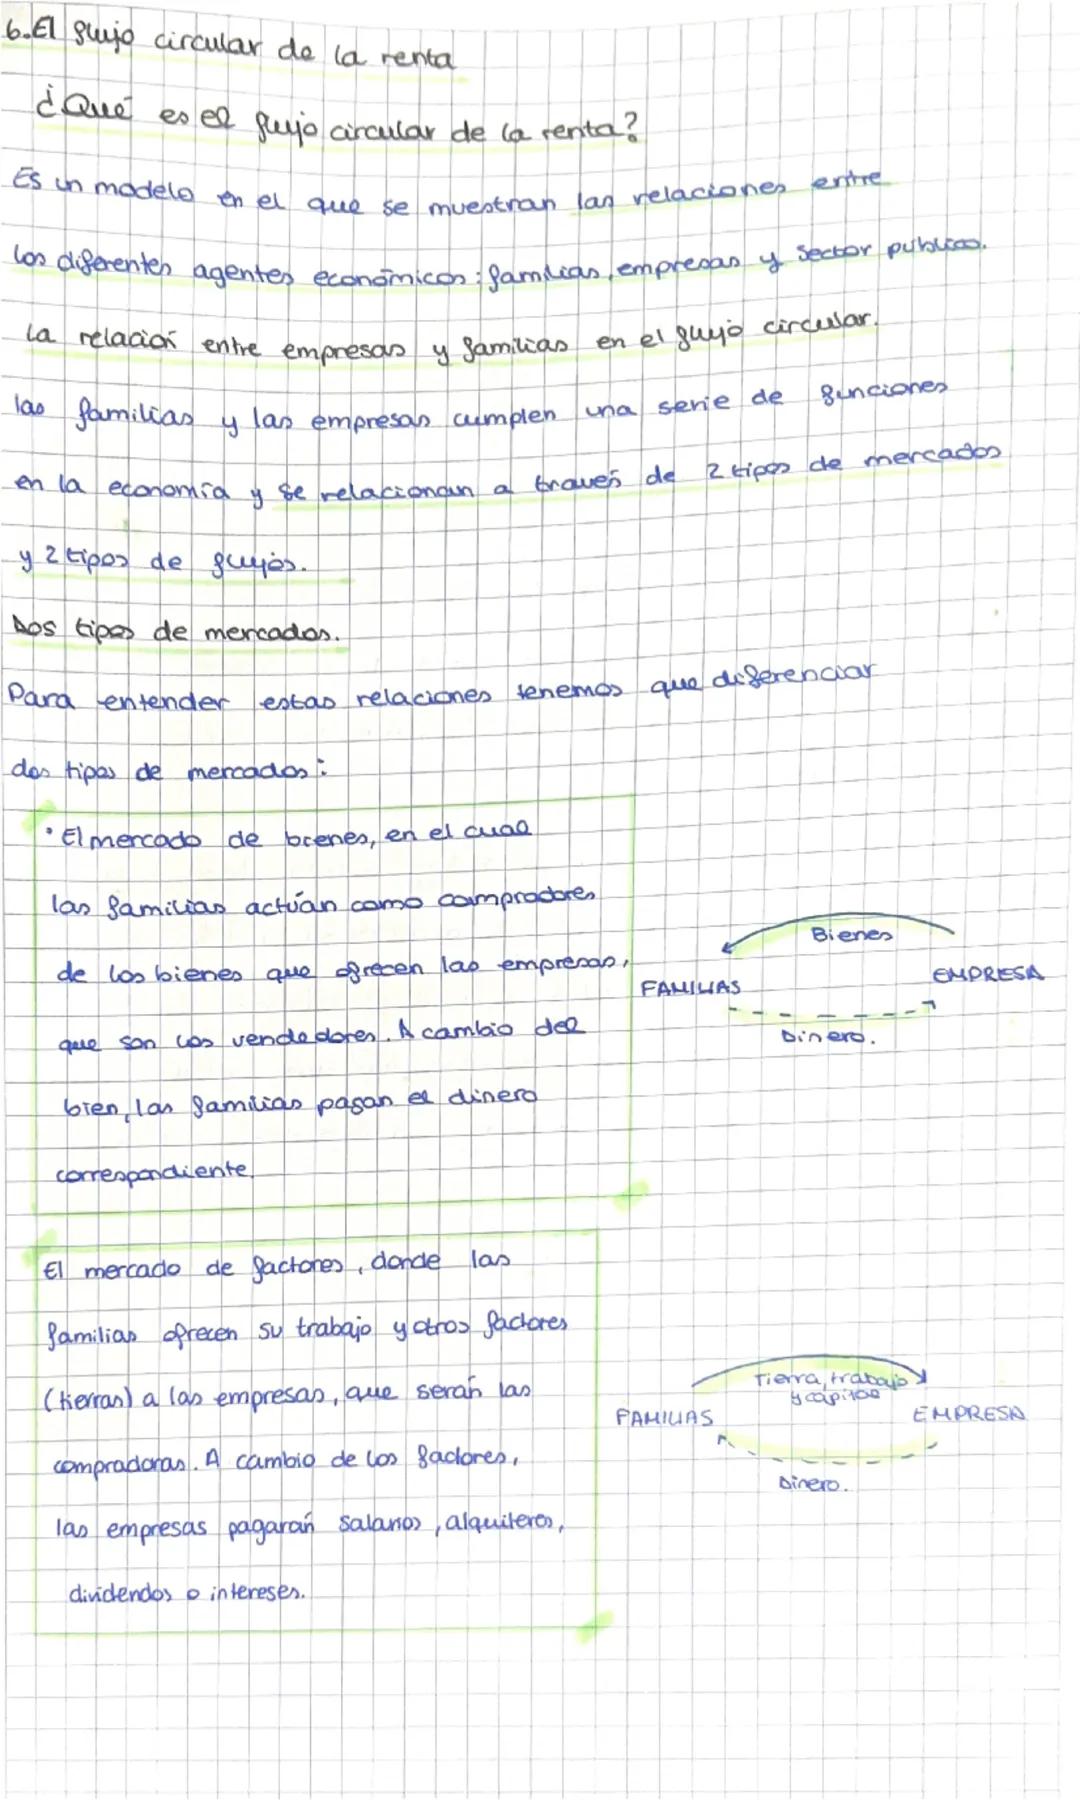 6.El flujo circular de la renta
¿Qué es el flujo circular de la renta?
Es un modelo en el que se muestran las relaciones entre
los diferentes agentes económicos: familias, empresas y sector público.
La relación entre empresas y familias en el flujo circular.
las familias y las empresas cumplen una serie de funciones
en la economía y se relacionan a través de 2 tipos de mercados
y 2 tipos de flujos.
Dos tipos de mercados.
Para entender estas relaciones tenemos que diferenciar
dos tipos de mercados:
• El mercado de bienes, en el cual
las familias actúan como compradores
de los bienes que ofrecen las empresas,
que son los vendedores. A cambio del
bien, las familias pagan el dinero
correspondiente.
Bienes
FAMILIAS
EMPRESA
Dinero.
El mercado de factores, donde las
familias ofrecen su trabajo y otros factores
(tierras) a las empresas, que serán las
compradoras. A cambio de los factores,
las empresas pagarán salarios, alquileres,
dividendos o intereses.
Tierra, trabajo
y capital
FAMILIAS
EMPRESA
Dinero.